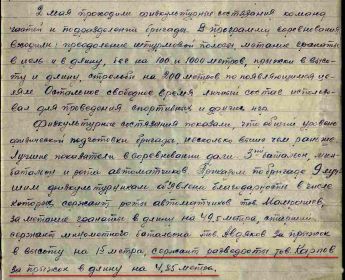 2 мая проходили физкультурные состязания команд
частей и подразделений бригады. В программу соревнования
входили: преодоление штурмовой полосы, метание гранаты
в цель и в длину, бег на 100 и 1000 метров, прыжки в высо-
ту и длину, стрельба на 200 метров по появляющимся це-
лям. Остальное свободное время личный состав использо-
вал для проведения спортивных и других игр.
Физкультурные состязания показали, что общий уровень
физической подготовки бригады, несколько выше чем раньше
Лучшие показатели в соревновании дали: 3ий батальон, мин
батальон и рота автоматчиков. Приказом по бригаде 9 луч-
шим физкультурникам объявлена благодарность в числе
которых сержант роты автоматчиков тов.
за метание гранаты в длину на 49,5 метра, старший
сержант минометного батальона тов. за прыжок
в высоту на 15 метра, сержант разведроты тов. Карпов
за прыжок в длину на 4,85 метра.